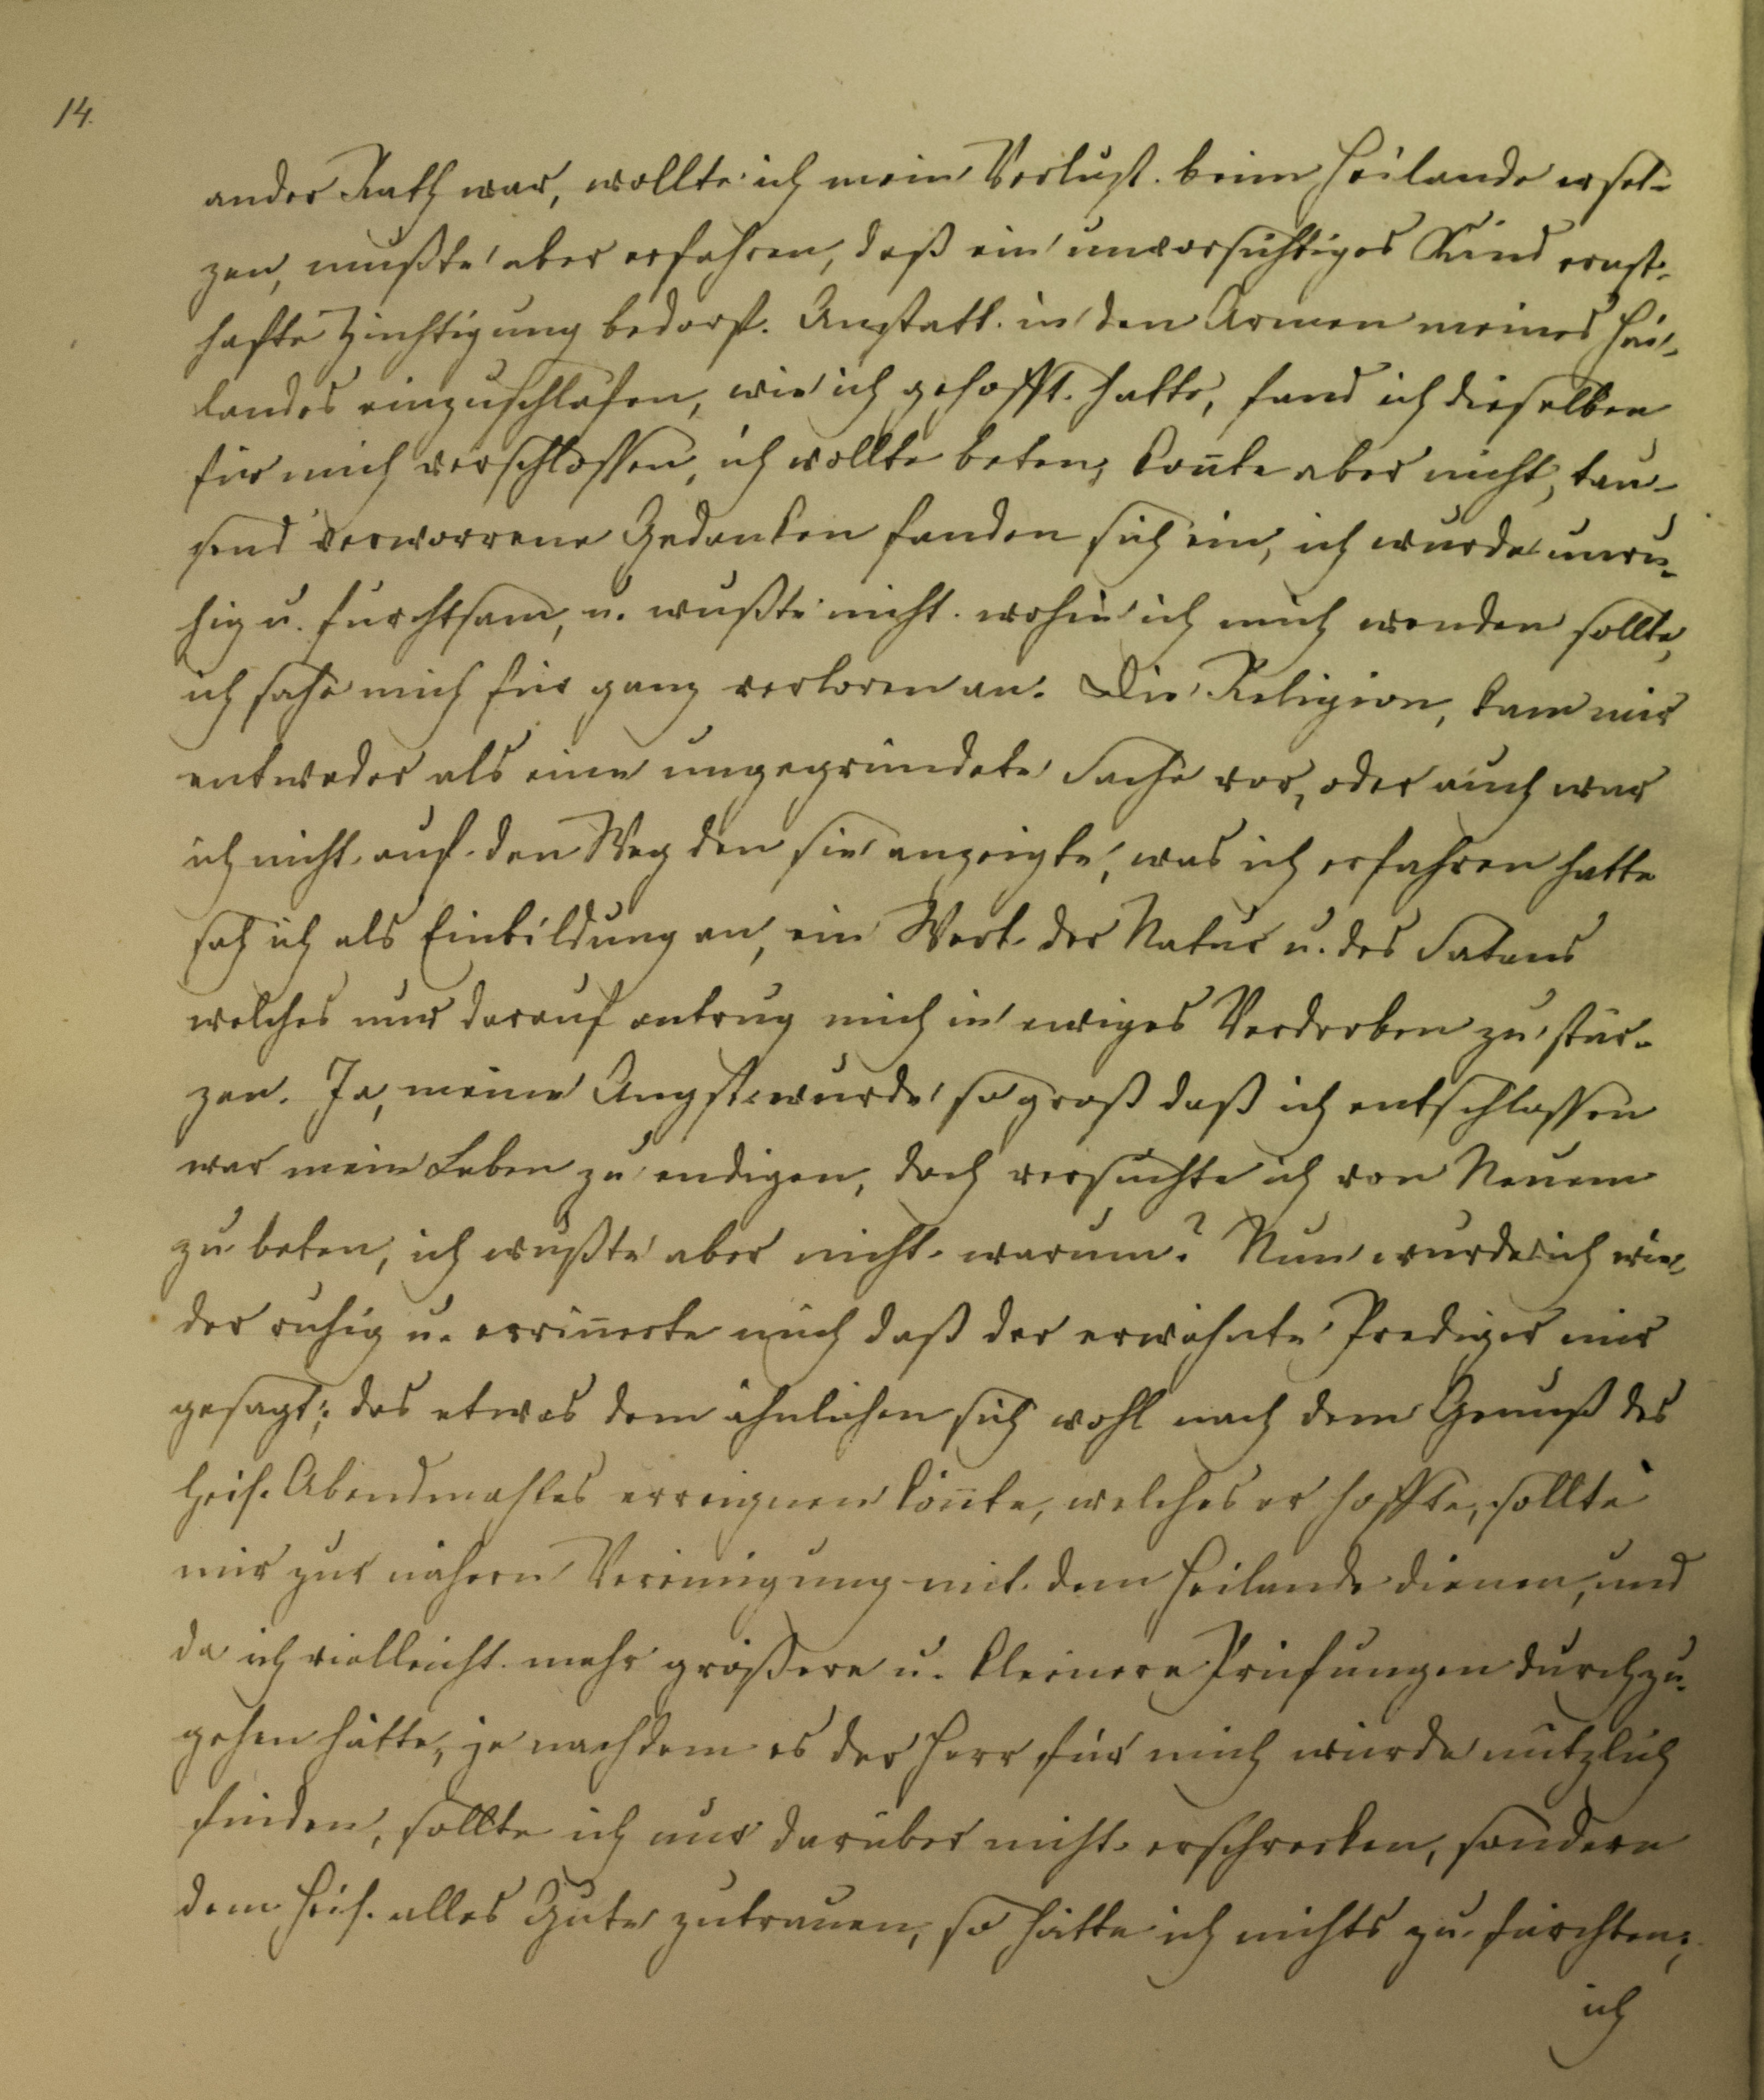 14.
ander Rath war, wollte ich mein Verlust beim Heilande erset-
zen, mußte aber erfahren, daß ein unvorsichtiges Kind ernst-
hafte Züchtigung bedarf. Anstatt in den Armen meines Hei-
landes einzuschlafen, wie ich gehofft hatte, fand ich dieselben
für mich verschlossen, ich wollte beten, kon̅te aber nicht, tau-
send verworrene Gedanken fanden sich ein, ich wurde unru-
hig u. furchtsam, u. wußte nicht wohin ich mich wenden sollte,
ich sahe mich für ganz verloren an. Die Religion, kam mir
entweder als eine ungegründete Sache vor, oder auch war
ich nicht auf den Weg den sie anzeigte, was ich erfahren hatte
sah ich als Einbildung an, ein Werk der Natur u. des Satans
welches nur darauf antrug mich in ewiges Verderben zu stür-
zen. Ja, meine Angst wurde so groß daß ich entschlossen
war mein Leben zu endigen, doch versuchte ich von Neuem
zu beten, ich wußte aber nicht warum? Nun wurde ich wie-
der ruhig u. errin̅erte mich daß der erwähnte Prediger mir
gesagt; das etwas dem ähnlichen sich wohl nach dem Genuß des
heil. Abendmahles erreignen kön̅te, welches er hoffte, sollte
mir zur nähern Vereinigung mit dem Heilande dienen, und
da ich vielleicht mehr größere u. kleinere Prüfungen durchzu-
gehen hätte, je nachdem es der Herr für mich würde nützlich
finden, sollte ich nur darüber nicht erschrecken, sondern
dem Heil. alles Gute zutrauen, so hätte ich nichts zu fürchten;
ich